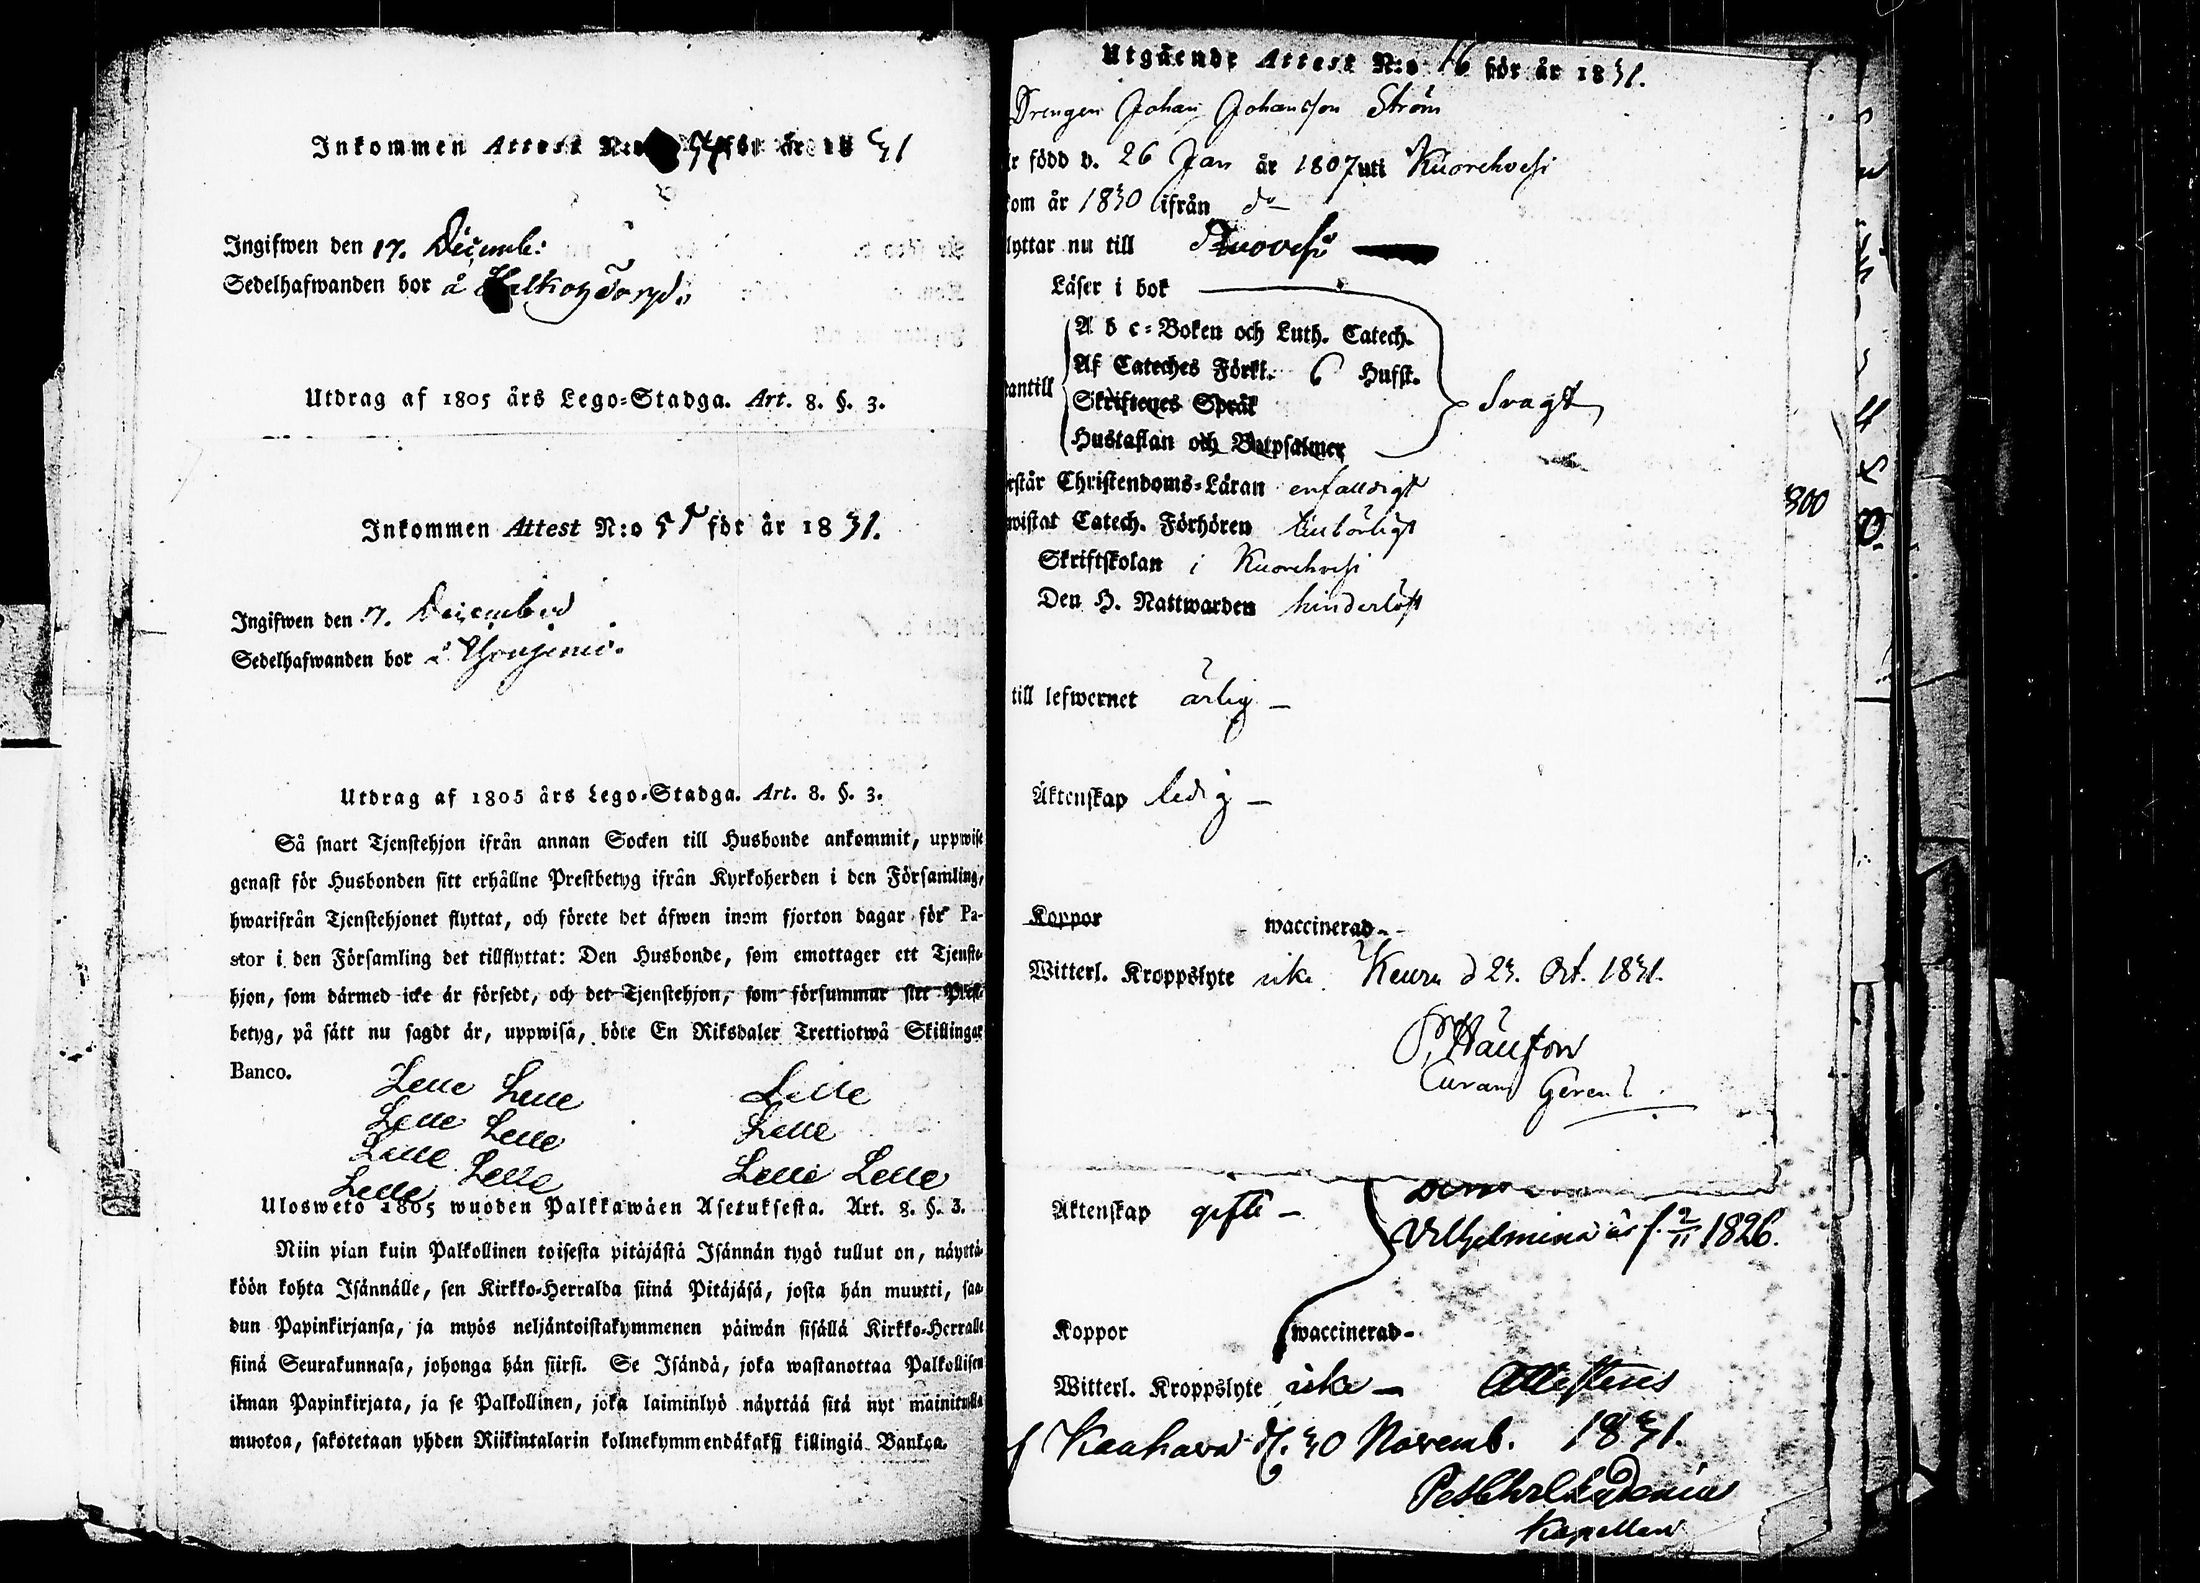 Inkommen Attest N:o för år 18 31
Ingifwen den 17. Decemb:
Sedelhafwanden bor å
Utdrag af 1805 års Lego-Stadga. Art. 8. §. 3.
Inkommen Attest N:o 55 för år 1831.
Ingifwen den 7. December
Sedelhafwanden bor å
Utdrag af 1805 års Lego-Stadga. Art. 8. §. 3.
Så snart Tjenstehjon ifrån annan Socken till Husbonde ankommit, uppwise
genast för Husbonden sitt erhållne Prestbetyg ifrån Kyrkoherden i den Församling,
hwarifrån Tjenstehjonet flyttat, och förete det äfwen inom fjorton dagar för Pa-
stor i den Församling det tillflyttat: Den Husbonde, som emottager ett Tjenste-
hjon, som därmed icke är försedt, och det Tjenstehjon, som försummar sitt Prest-
betyg, på sätt nu sagdt är, uppwisa, böte En Riksdaler Trettiotwå Skillingar
Banco.
Lelle Lelle Lelle
Lelle Lelle Lelle
Lelle Lelle Lelle Lelle
Lelle
Ulosweto 1805 wuoden Palkkawäen Asetuksesta. Art. 8. §. 3.
Niin pian kuin Palkollinen toisesta pitäjästä Isännän tygö tullut on, näyttä-
köön kohta Isännälle, sen Kirkko-Herralda siinä Pitäjäsä, josta hän muutti, saa-
dun Papinkirjansa, ja myös neljäntoistakymmenen päiwän sisällä Kirkko-Herralle
siinä Seurakunnasa, johonga hän siirsi. Se Isändä, joka wastanottaa Palkollisen
ilman Papinkirjata, ja se Palkollinen, joka laiminlyö näyttää sitä nyt mainitulla
muotoa, sakotetaan yhden Riikintalarin kolmekymmendäkaksi killingiä Bankoa.
Utgående Attest N:o 16 för år 1831.
Drengen Johan Johansson Ström
är född d. 26 Jan år 1807 uti Kuorehvesi
kom år 1830 ifrån do
lyttar nu till Ruovesi
Läser i bok
A b c-Boken och Luth. Catech.
Af Cateches Förkl. 6 Hufst.
antill Skriftenes Språk
Hustaflan och Botpsalmer
Svagt
rstår Christendoms-Läran enfaldigt
wistat Catech. Förhören
Skriftskolan i Kuorehvesi
Den H. Nattwarden hinderlöst
till lefwernet ärlig —
Äktenskap ledig —
Koppor waccinerad-
Witterl. Kroppslyte icke. Keuru d 23. Oct. 1831.
Curam Gerens
300
Äktenskap gifte —
Vilhelmina är f. 2/11 1826.
Koppor waccinerad-
Witterl. Kroppslyte icke — Attesteras
d. 30 Novemb. 1831.
Kapellan